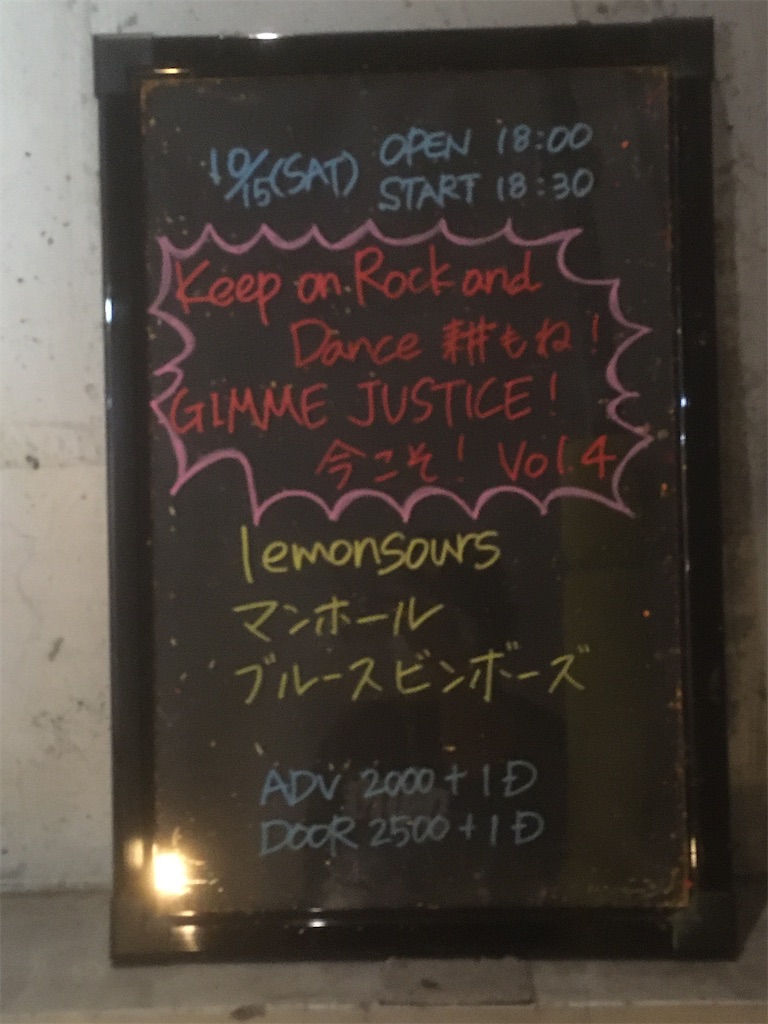 10/15(SAT) OPEN 18:00
START 18:30
Keep on Rock and
Dance 耕もね!
GIMME JUSTICE!
今こそ! Vol.4
lemonsours
マンホール
ブルースビンボーズ
ADV 2000+1D
DOOR 2500+1D